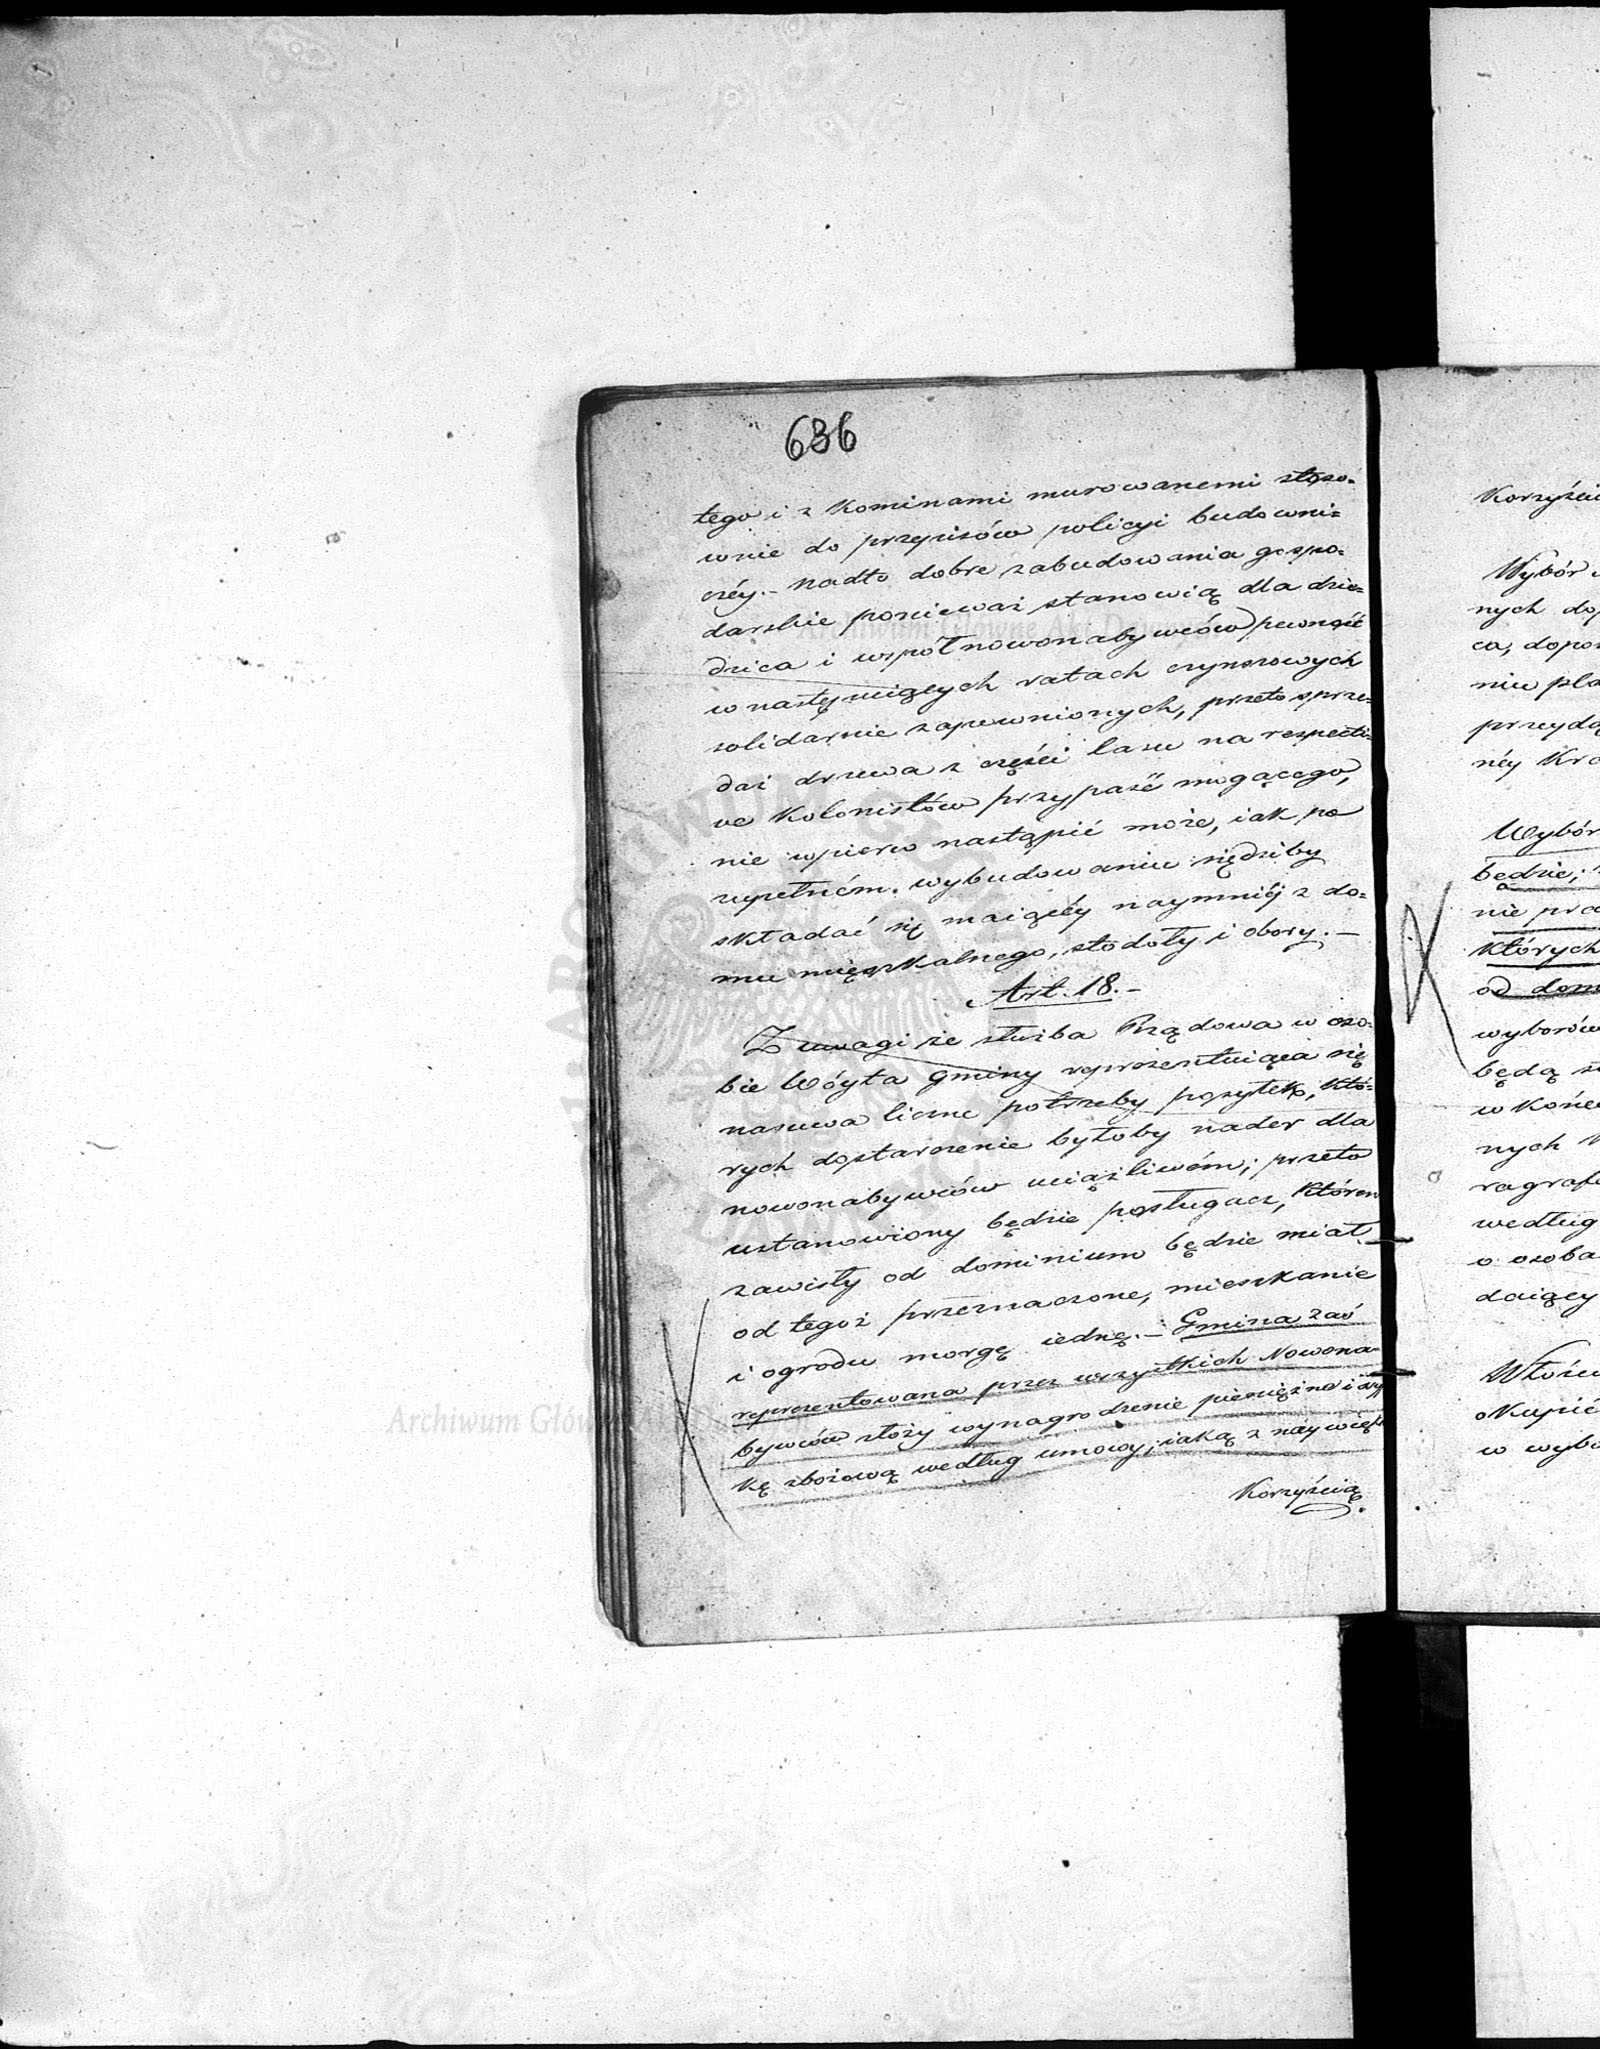 636
tego i z kominami murowanemi stoso-
wnie do przepisów policyi budowni-
czéy. – nadto dobre zabudowania gospo-
darskie ponieważ stanowią dla dzie-
dzica i wspołnowonabywców pewność
w następuiących ratach czynszowych
solidarnie zapewnionych, przeto sprze-
daż drzewa z części lasu na respecti-
ve kolonistów przypaść mogącego,
nie wpierw nastąpić może, iak po
zupełném wybudowaniu siędziby
składać się maiącéy naymniéj z do-
mu mięszkalnego, stodoły i obory. –
Art. 18. –
Z uwagi że służba Rządowa w oso-
bie Wóyta Gminy reprezentuiąca się
nasuwa liczne potrzeby posyłek, któ-
rych dostarczenie byłoby nader dla
nowonabywców uciążliwém; przeto
ustanowiony będzie posługacz, któren
zawisły od dominium będzie miał
od tegoż przeznaczone, mieszkanie
i ogrodu morgę iednę. – Gmina zaś
reprezentowana przez wszystkich Nowona-
bywców złoży wynagrodzenie pieniężne i
kę zbożową według umowy, iaką z naywięk
Korzyścią
Korzyści
Wybór
nych
ca,
niu
przeydą
néy
Wybór
będzie;
nie
których
od dom
wyborów
będą
w końcu
nych
ragraf
według
o osoba
daiący
Włości
okupić
w wybo
Archiwum Główne Akt Dawnych